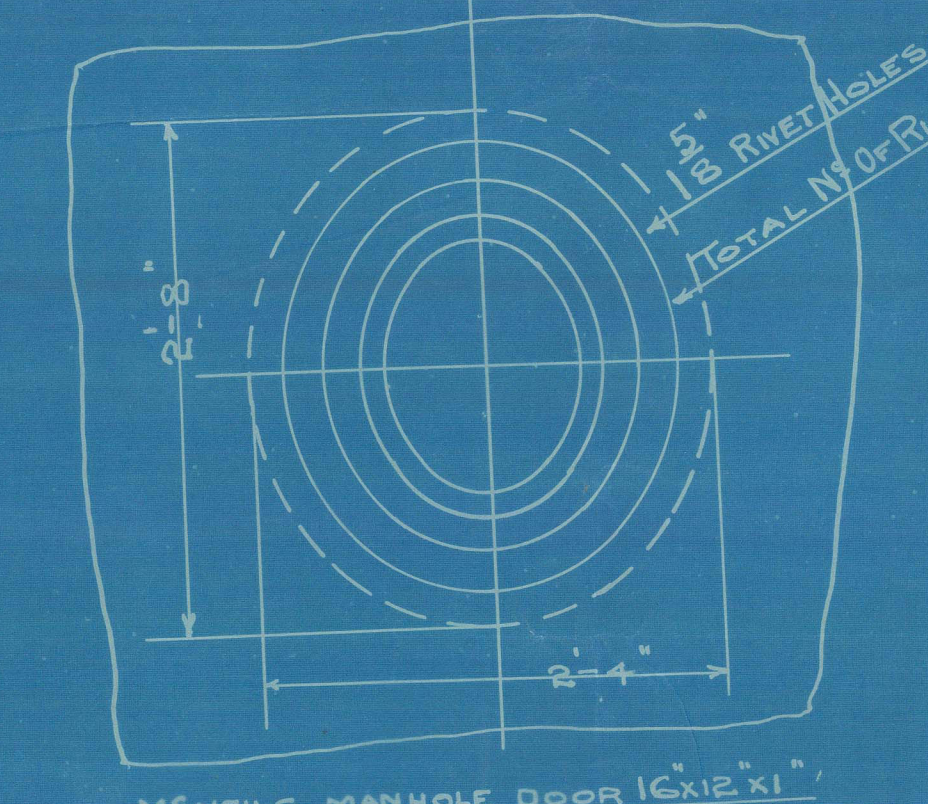 1 5/8" RIVET HOLES
TOTAL Nº OF
2'-8"
2'-4"
MANHOLE DOOR 16"x12"x1"